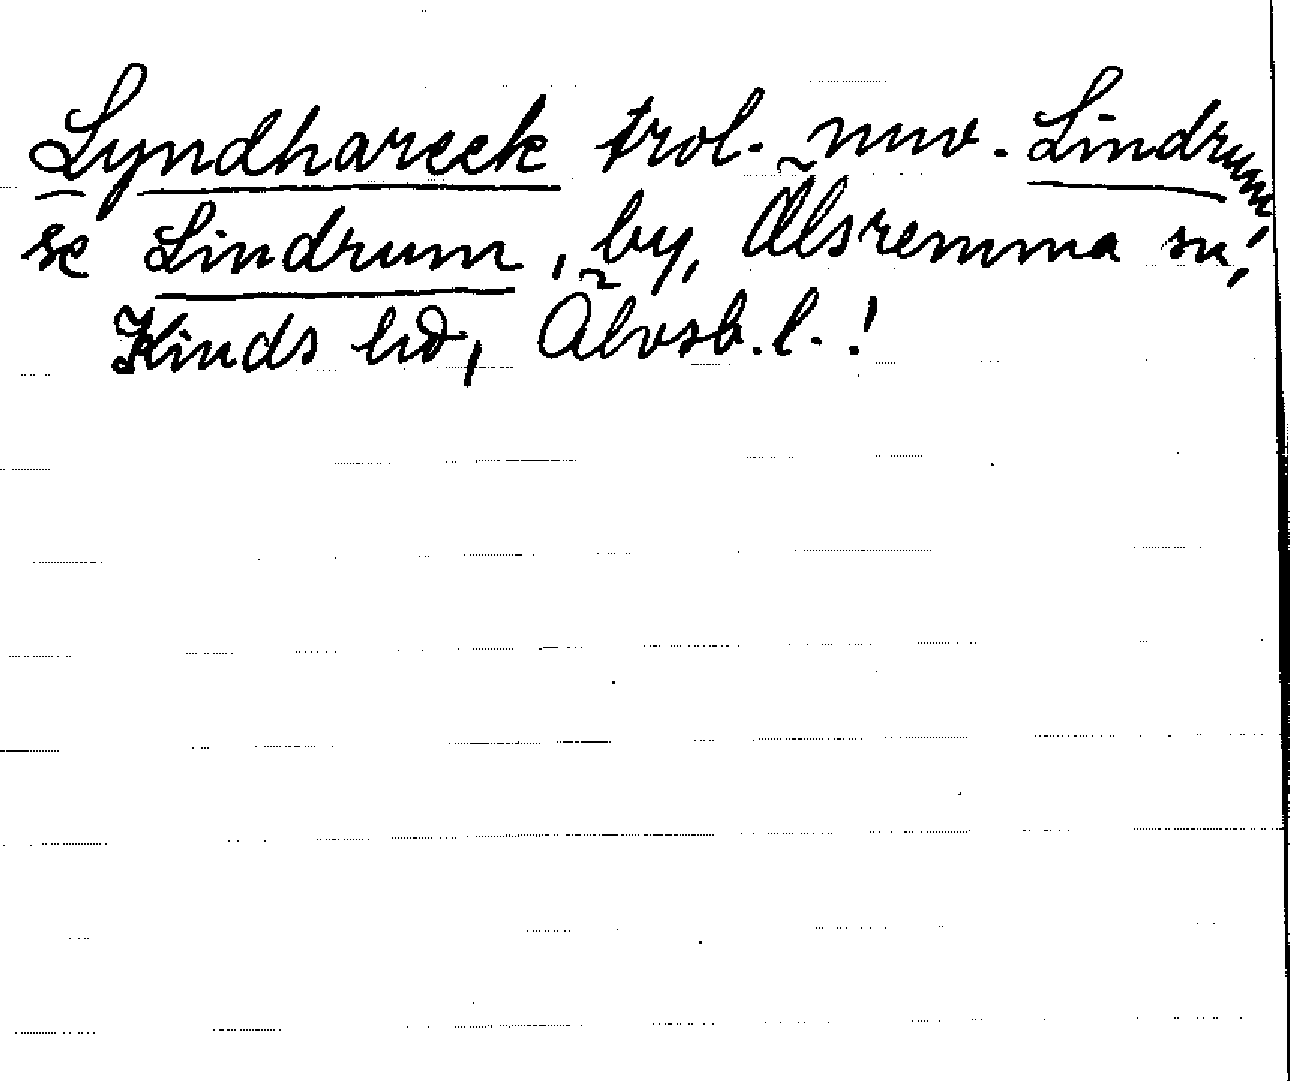 Lyndhareck trol. nuv. Lindrum,
se Lindrum, by, Älsremma sn,
Kinds hd, Älvsb. l.!